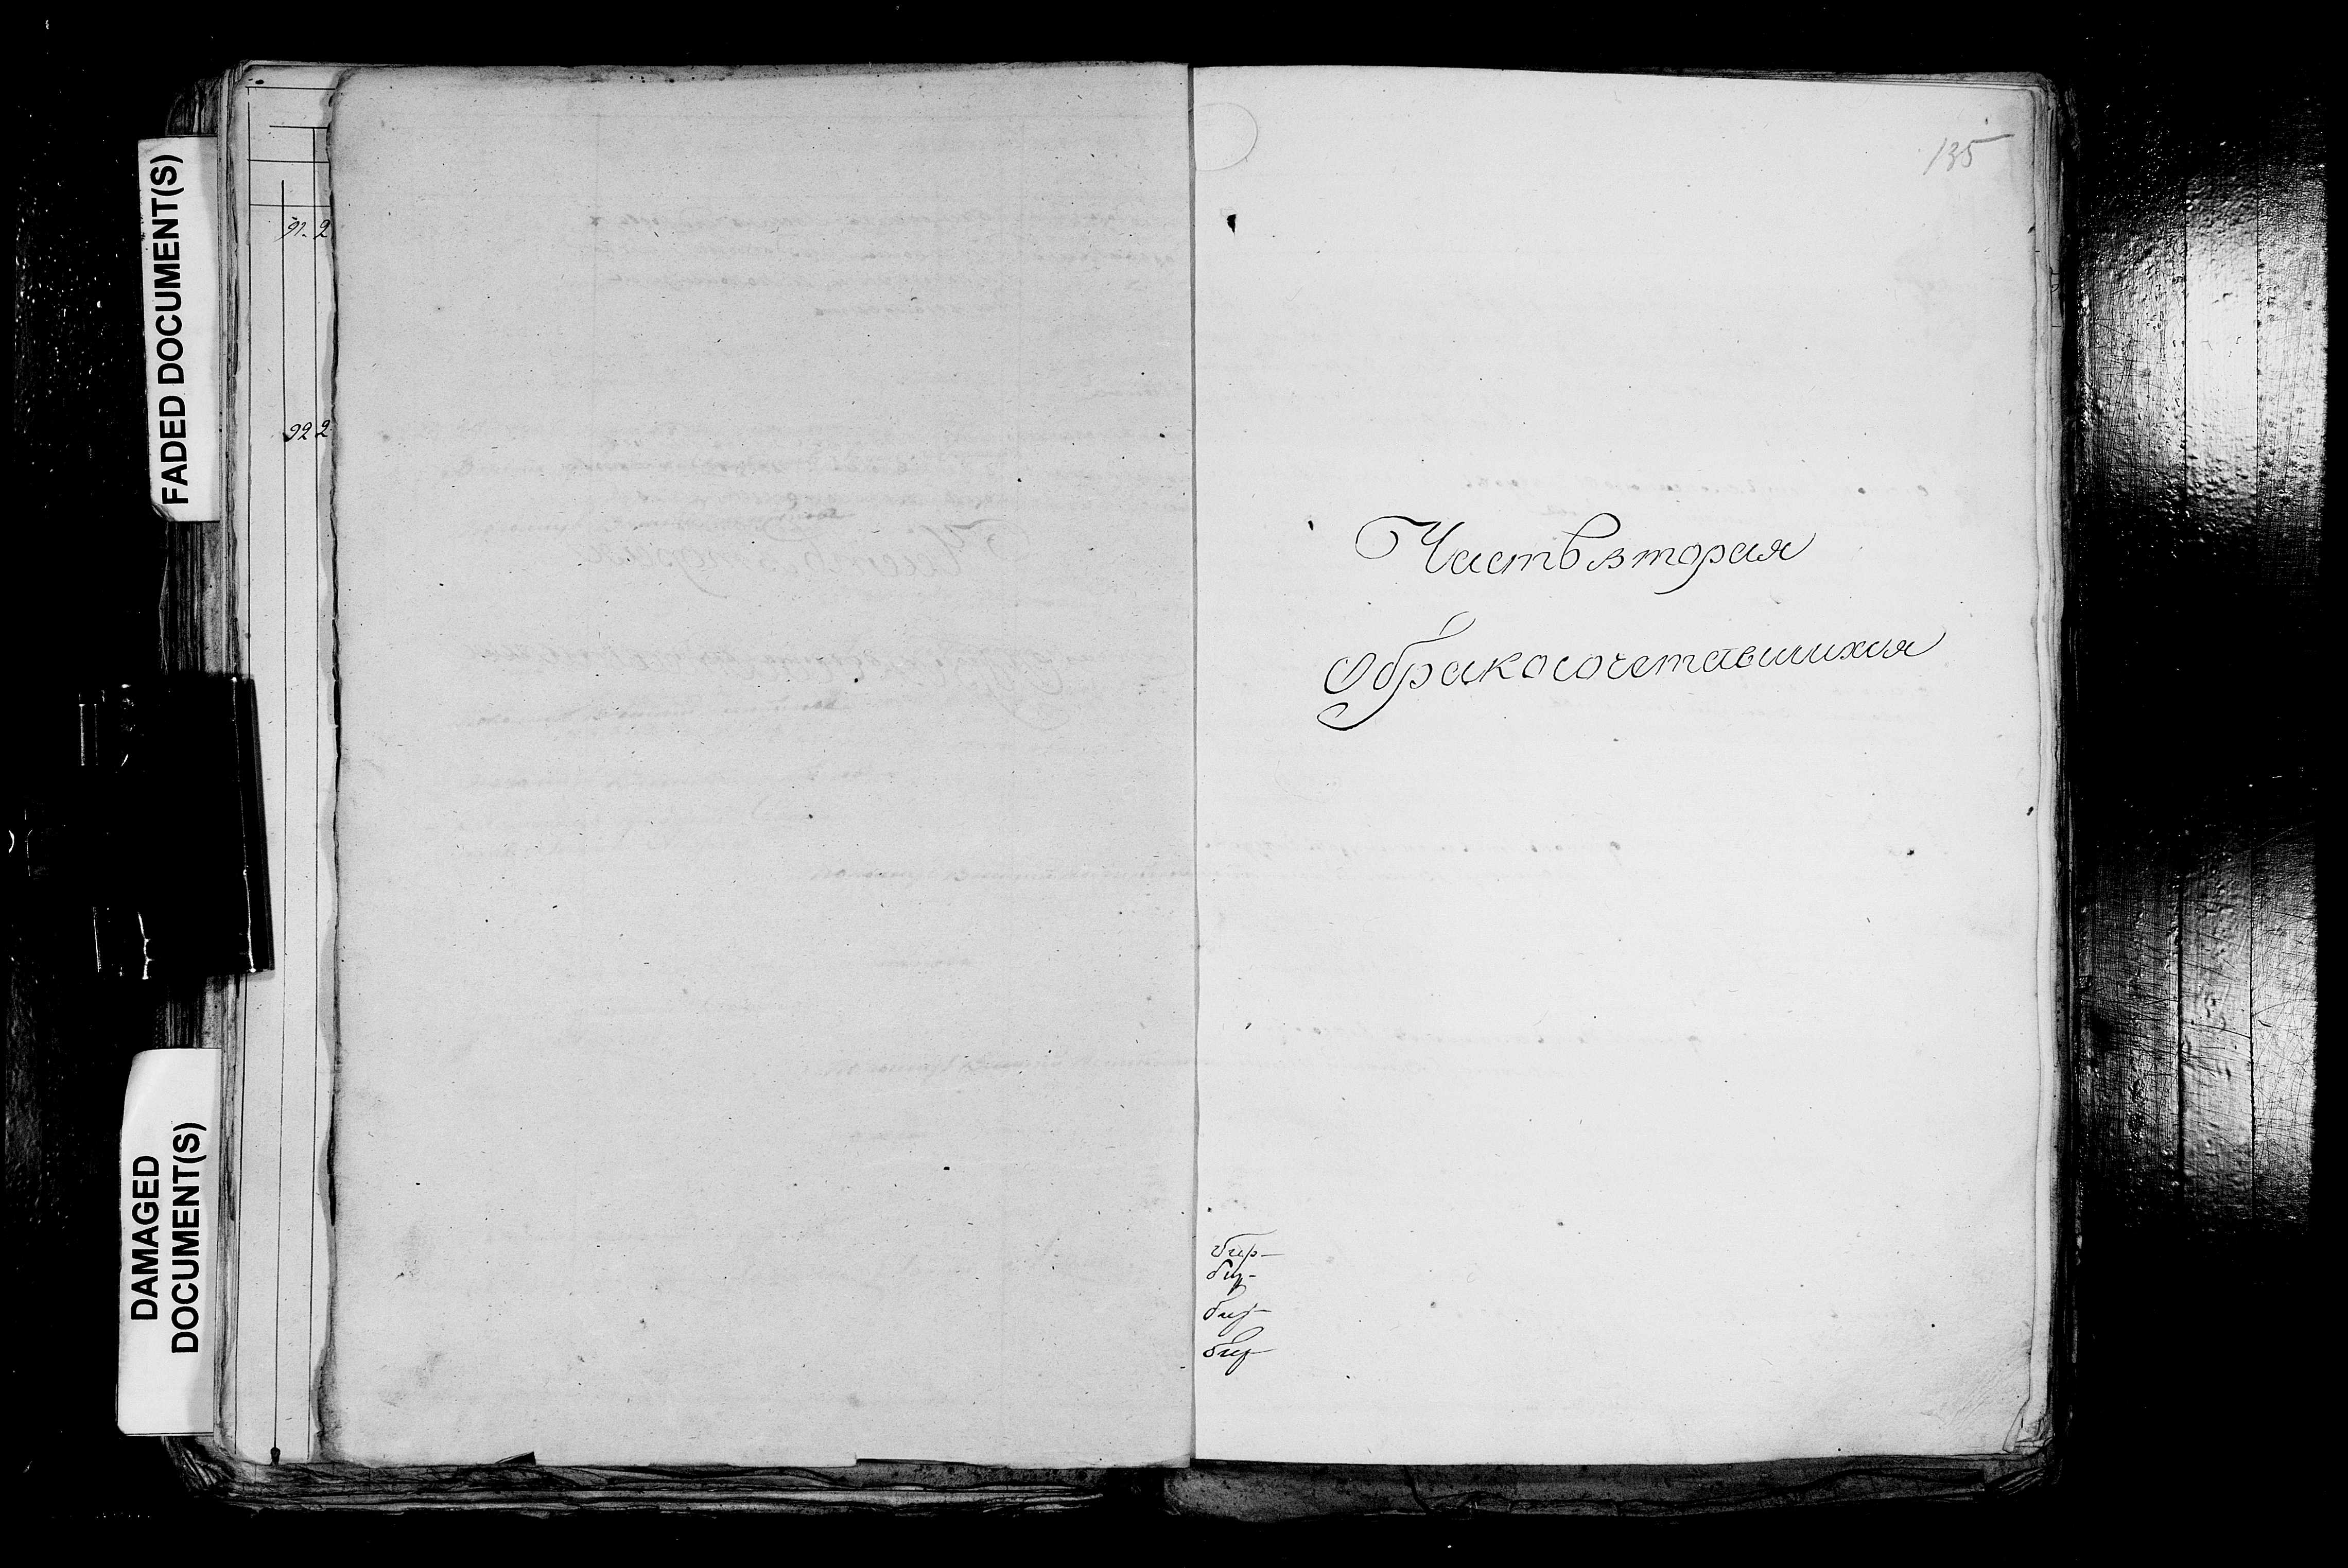 FADED DOCUMENT(S)
DAMAGED
DOCUMENT(S)
91. 2
92 2
135
Часть вторая
О бракосочетавшихся